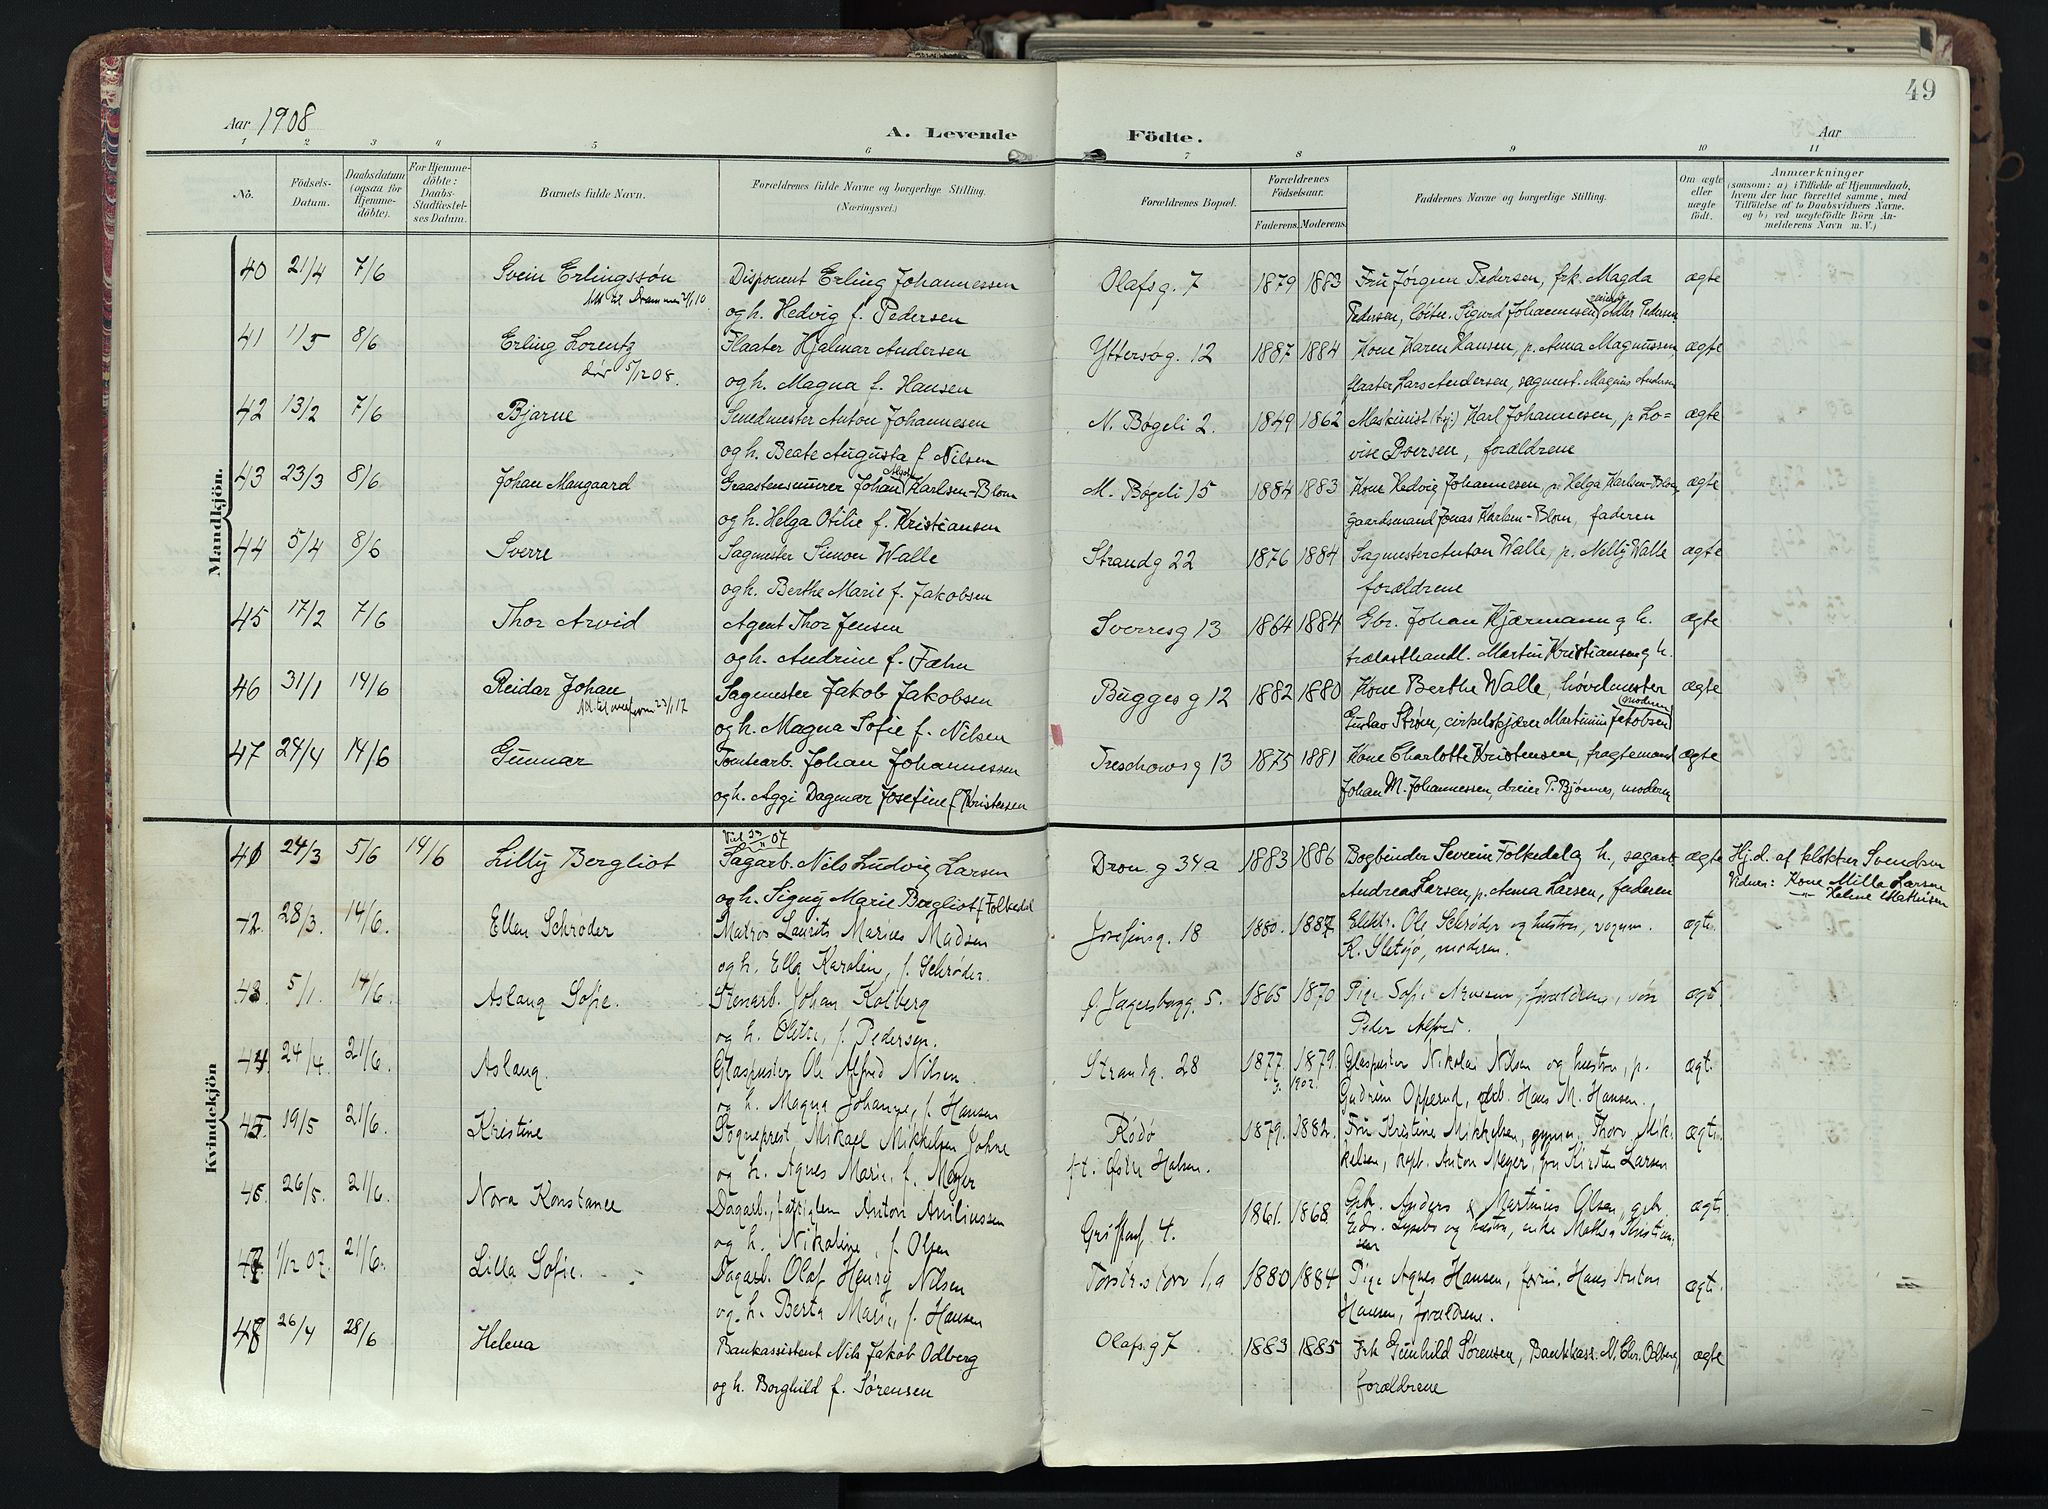 49
Aar 1908
A. Levende Födte.
Aar
1 2 3 4 5 6 7 8 9 10 11
No.
Födsels-Datum.
Daabsdatum (ogsaa for Hjemmedöbte).
For Hjemmedöbte: Daabs-Stadfæstelses Datum.
Barnets fulde Navn.
Forældrenes fulde Navne og borgerlige Stilling. (Næringsvei.)
Forældrenes Bopæl.
Forældrenes Födselsaar.
Faderens. Moderens.
Faddernes Navne og borgerlige Stilling.
Om ægte eller uægte födt.
Anmærkninger
(saasom: a) i Tilfælde af Hjemmedaab, hvem der har forrettet samme, med Tilföielse af to Daabsvidners Navne. og b) ved uægtefödte Börn Anmelderens Navn m. V.)
Mandkjön.
40 21/4 7/6 Svein Erlingssøn Disponent Erling Johannessen Olafsg. 7 1879 1883 Fru Jørgen Pedersen, frk. Magda ægte
Att. til Drammen
og h. Hedvig f. Pedersen Pedersen, Sigurd Johannesen, Adler Pedersen
41 1/5 8/6 Erling Lorentz Flaater Hjalmar Andersen Yttersøg. 12 1887 1884 Kone Karen Hansen, p. Anna Magnussen, ægte
dør 5/12 08.
og h. Magna f. Hansen flaater Lars Andersen, sagmest. Magnus Andersen
42 13/2 7/6 Bjarne Smedmester Anton Johannesen N. Bøgeli 2. 1849 1862 Maskinist Karl Johannesen, p Lo= ægte
og h. Beate Augusta f Nilsen vise Iversen, forældrene
43 23/3 8/6 Johan Mangaard Graastensmurer Johan Karlsen-Blom M. Bøgeli 15 1884 1883 Kone Hedvig Johannesen, p. Helga Karlsen-Blom, ægte
og h. Helga Otilie f. Kristiansen gaardsmand Jonas Karlsen-Blom, faderen
44 5/4 8/6 Sverre Sagmester Simon Walle Strandg 22 1876 1884 Sagmester Anton Walle, p. Nelly Walle ægte
og h. Berthe Marie f. Jakobsen forældrene
45 17/2 7/6 Thor Arvid Agent Thor Jensen Sverresg 13 1864 1884 Gbr. Johan Kjærmann og h. ægte
og h. Andrine f. Fæhn trælasthandl. Martin Kristiansen og h.
46 31/1 14/6 Reidar Johan Sagmester Jakob Jakobsen Bugges g 12 1882 1880 Kone Berthe Walle, høvdmester ægte
og h. Magna Sofie f. Nilsen Gustav Strøm, cirkelskjærer Martinius Jakobsen moderen
47 24/4 14/6 Gunnar Tomtearb. Johan Johannessen Treschows g 13 1875 1881 Kone Charlotte Kristensen, fragtemand ægte
og h. Aggi Dagmar Josefine f. Kristensen Johan M. Johannessen, dreier P. Bjønnes, moderen
Kvindekjön
41 24/3 5/6 14/6 Lilly Bergliot Sagarb. Nils Ludvig Larsen Dron g 34a 1883 1886 Bogbinder Severin Folkedal og h., sagarb. ægte Hj.d. af klokker Svendsen
og h. Signy Marie Bergliot f Folkedal Andreas Larsen, p. Anna Larsen, faderen Vidner: Kone Milla Larsen
" Helene Mathisen
42 28/3. 14/6. Ellen Schrøder Matros Laurits Marius Madsen Josefinesg. 18 1880. 1887 Elektr. Ole Schrøder og hustru, vognm. ægte
og h. Ella Karolin, f. Schrøder. R. Sletsjø, moderen.
43. 5/1. 14/6. Aslaug Sofie. Stenarb. Johan Kolberg Ø Jegersborgg. 5. 1865 1870 Pige Sofie Arnesen, forældrene, søn ægte
og h. Olette, f. Pedersen. Peder Alfred.
44. 24/4. 21/6. Aslaug. Glaspuster Ole Alfred Nilsen. Strandg. 28 1877 1879. Glaspuster Nikolai Nilsen og hustru, p. ægte
1902.
og h. Magna Johanne, f. Hansen Gudrun Opperud, Hans M. Hansen.
45. 19/5 21/6. Kristine Sogneprest Mikael Mikkelsen Johne Rödö 1879. 1882. Fru Kristine Mikkelsen, Thorv. Mik- ægte
og h. Agnes Marie f. Meyer ft. Østre Halsen. kelsen, kapt. Anton Meyer, frk Kirsten Larsen
46 26/5. 21/6. Nora Konstance Dagarb. Anton Amliussen 4. 1861. 1868 Gbr. Anders & Martinius Olsen, gbr. ægte
og h. Nikoline, f. Olsen og hustru, enke Mathea Kristiansen
47 1/12 07. 21/6. Lilla Sofie. Dagarb. Olaf Henry Nilsen Torstr.storv 1,a 1880 1884 Pige Agnes Hansen, Hans Anton ægte
og h. Berta Marie, f. Hansen Hansen, forældrene.
48 26/4 28/6 Helena Bankassistent Nils Jakob Odberg Olafs.g 7 1883 1885 Frk Gunhild Sørensen, Bankkass. N. Chr. Odberg, ægte
og h. Borghild f. Sørensen forældrene